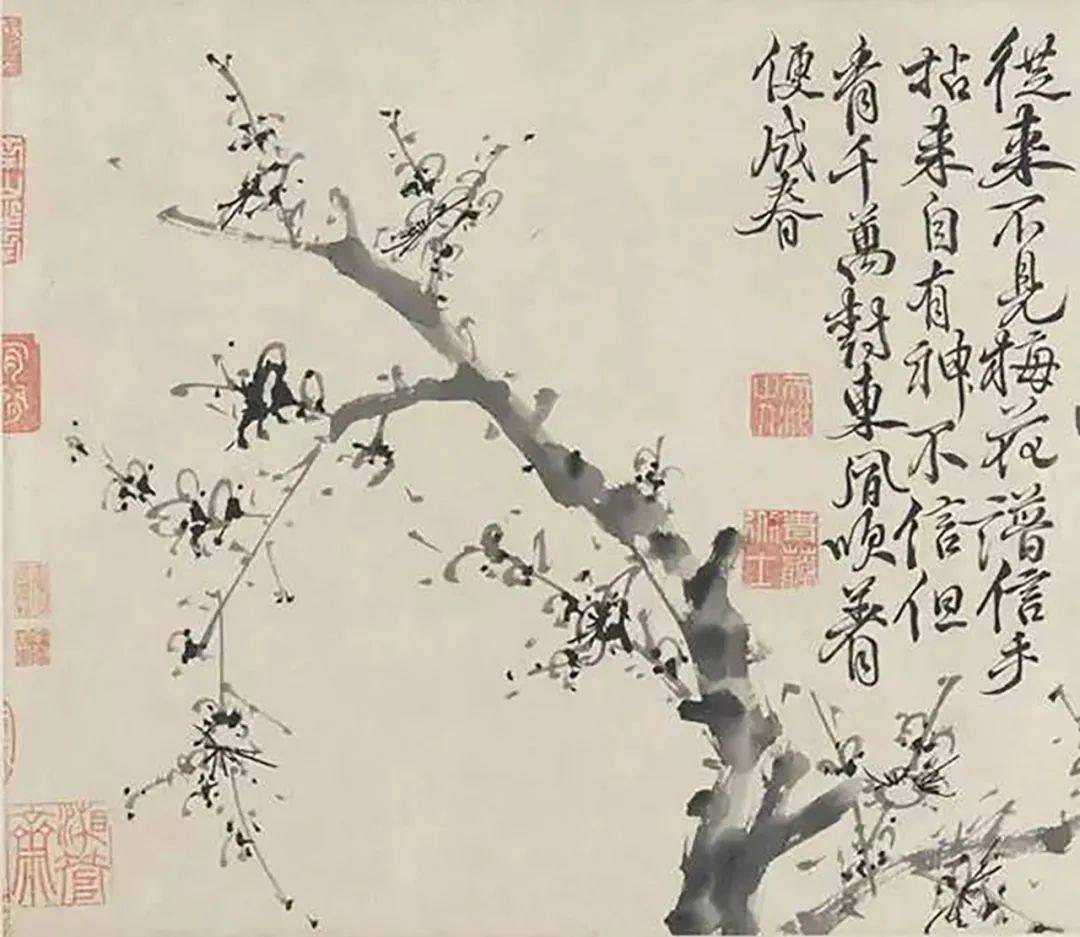 從来不見梅花譜信手
拈来自有神不信但
看千萬樹東風吹着
便成春
青藤道士
湘管齋